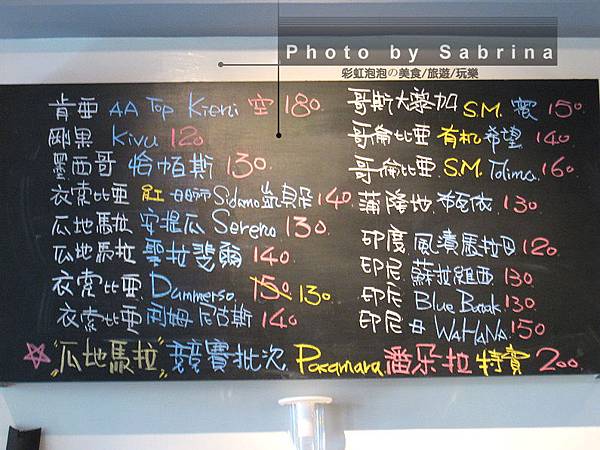 Photo by Sabrina
彩虹泡泡の美食/旅遊/玩樂
肯亞 AA Top Kieni 空 180.
剛果 Kivu 120
墨西哥 恰帕斯 130.
衣索比亞 Sidamo 140.
瓜地馬拉 安提瓜 Sereno 130
瓜地馬拉 聖拉斐爾 140
衣索比亞 Dammerso. 150 130.
衣索比亞 利姆 尼古斯 140
哥斯大黎加 S.M. 蜜 150.
哥倫比亞 有机 希望 140.
哥倫比亞 S.M. Tolima. 160.
蒲隆地 130
印度 風漬馬拉巴 120.
印尼 蘇拉維西 130.
印尼 Blue Batak 130.
印尼 WaHaNa 150
"瓜地馬拉" 競賽批次 Pacamara 潘朵拉 特賣 200.